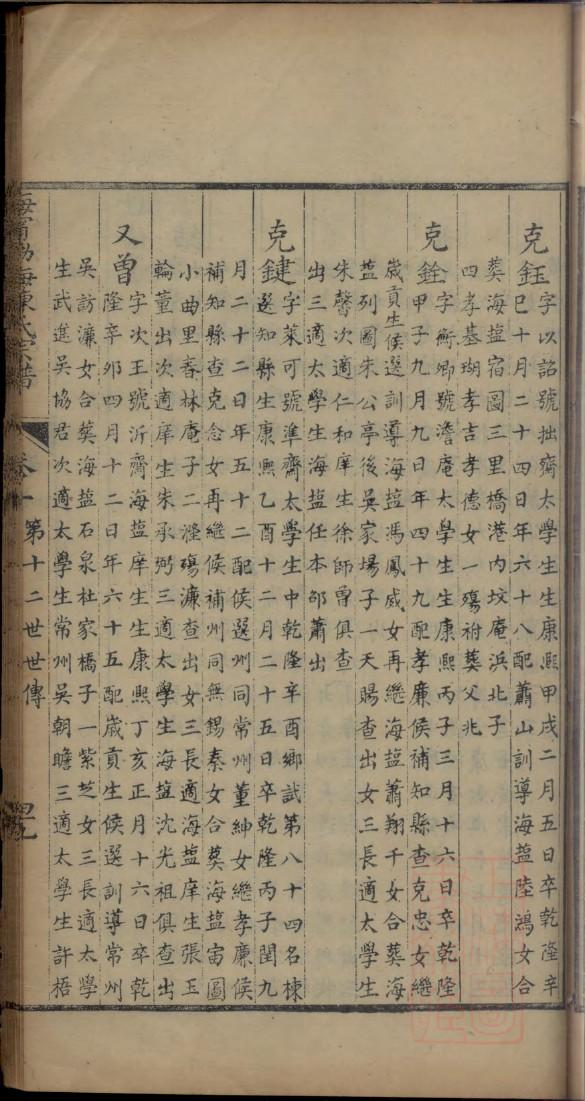 克鈺字以詔號拙齋太學生生康熙甲戌二月五日卒乾隆辛
巳十月二十四日年六十八配蕭山訓導海盐陸鴻女合
葬海盐宿圖三里橋港內坟庵浜北子
四孝基瑚孝吉孝德女一殤祔葬父兆
克銓字衡卿號澹庵太學生生康熙丙子三月十六日卒乾隆
甲子九月九日年四十九配孝廉侯補知縣查克忠女繼
歲貢生侯選訓導海盐馮鳳威女再繼海盐蕭翔千女合葬海
盐列圖朱公亭後吳家場子一天賜查出女三長適太學生
朱馨次適仁和庠生徐師曾俱查
出三適太學生海盐任本邵蕭出
克鍵字萊可號準齋太學生中乾隆辛酉鄉試第八十四名棟
選知縣生康熙乙酉十二月二十五日卒乾隆丙子閏九
月二十二日年五十二配侯選州同常州董紳女繼孝廉侯
補知縣查克念女再繼侯補州同無錫秦女合葬海盐宙圖
小曲里春林庵子二瀅殤濂查出女三長適海盐庠生張玉
輪董出次適庠生朱承弼三適太學生海盐沈光祖俱查出
又曾字次王號沂齋海盐庠生生康熙丁亥正月十六日卒乾
隆辛卯四月十二日年六十五配歲貢生侯選訓導常州
吳訪濂女合葵海盐石泉杜家橋子一紫芝女三長適太學
生武進吳協君次適太學生常州吳朝瞻三適太學生許梧
海寧渤海陳氏宗譜
卷一
第十二世世傳